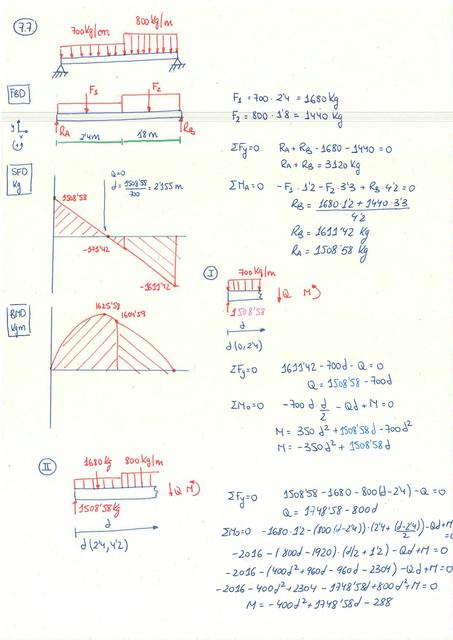 7.7
700 kg/cm
800 kg/m
FBD
F₁
F₂
R_A
R_B
2'4m
1'8m
y
x
(+)
F₁ = 700 · 2'4 = 1680 kg
F₂ = 800 · 1'8 = 1440 kg
ΣFy=0 R_A + R_B - 1680 - 1440 = 0
R_A + R_B = 3120 kg
ΣM_A = 0 -F₁·1'2 - F₂·3'3 + R_B·4'2 = 0
R_B = 1680·1'2 + 1440·3'3
4'2
R_B = 1611'42 kg
R_A = 1508'58 kg
SFD
kg
Q=0
d = 1508'58 = 2'155 m
700
1508'58
-171'42
-1611'42
I
700 kg/m
↓Q M
1508'58
d
d(0,2'4)
BMD
kgm
1625'58
1604'59
ΣFy=0 1611'42 - 700d - Q = 0
Q = 1508'58 - 700d
ΣM₀=0 -700 d · d/2 - Qd + M = 0
M = 350 d² + 1508'58d - 700d²
M = -350d² + 1508'58d
II
1680kg
800 kg/m
↓Q M
1508'58 kg
d
d(2'4, 4'2)
ΣFy=0 1508'58 - 1680 - 800(d-2'4) - Q = 0
Q = 1748'58 - 800d
ΣM₀=0 -1680·1'2 - (800(d-2'4))·(2'4 + (d-2'4)/2) - Qd + M = 0
-2016 - (800d - 1920)·(d/2 + 1'2) - Qd + M = 0
-2016 - (400d² + 960d - 960d - 2304) - Qd + M = 0
-2016 - 400d² + 2304 - 1748'58d + 800d² + M = 0
M = -400d² + 1748'58d - 288